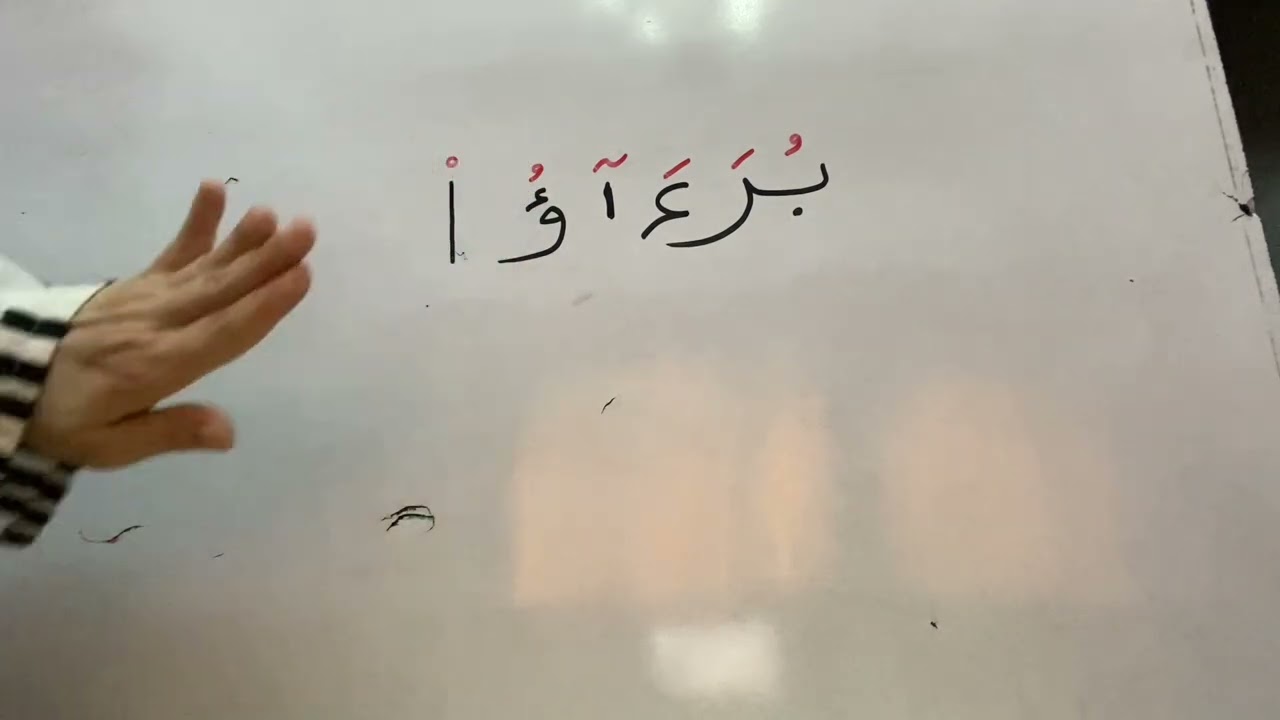 بُرَءَآؤُاْ